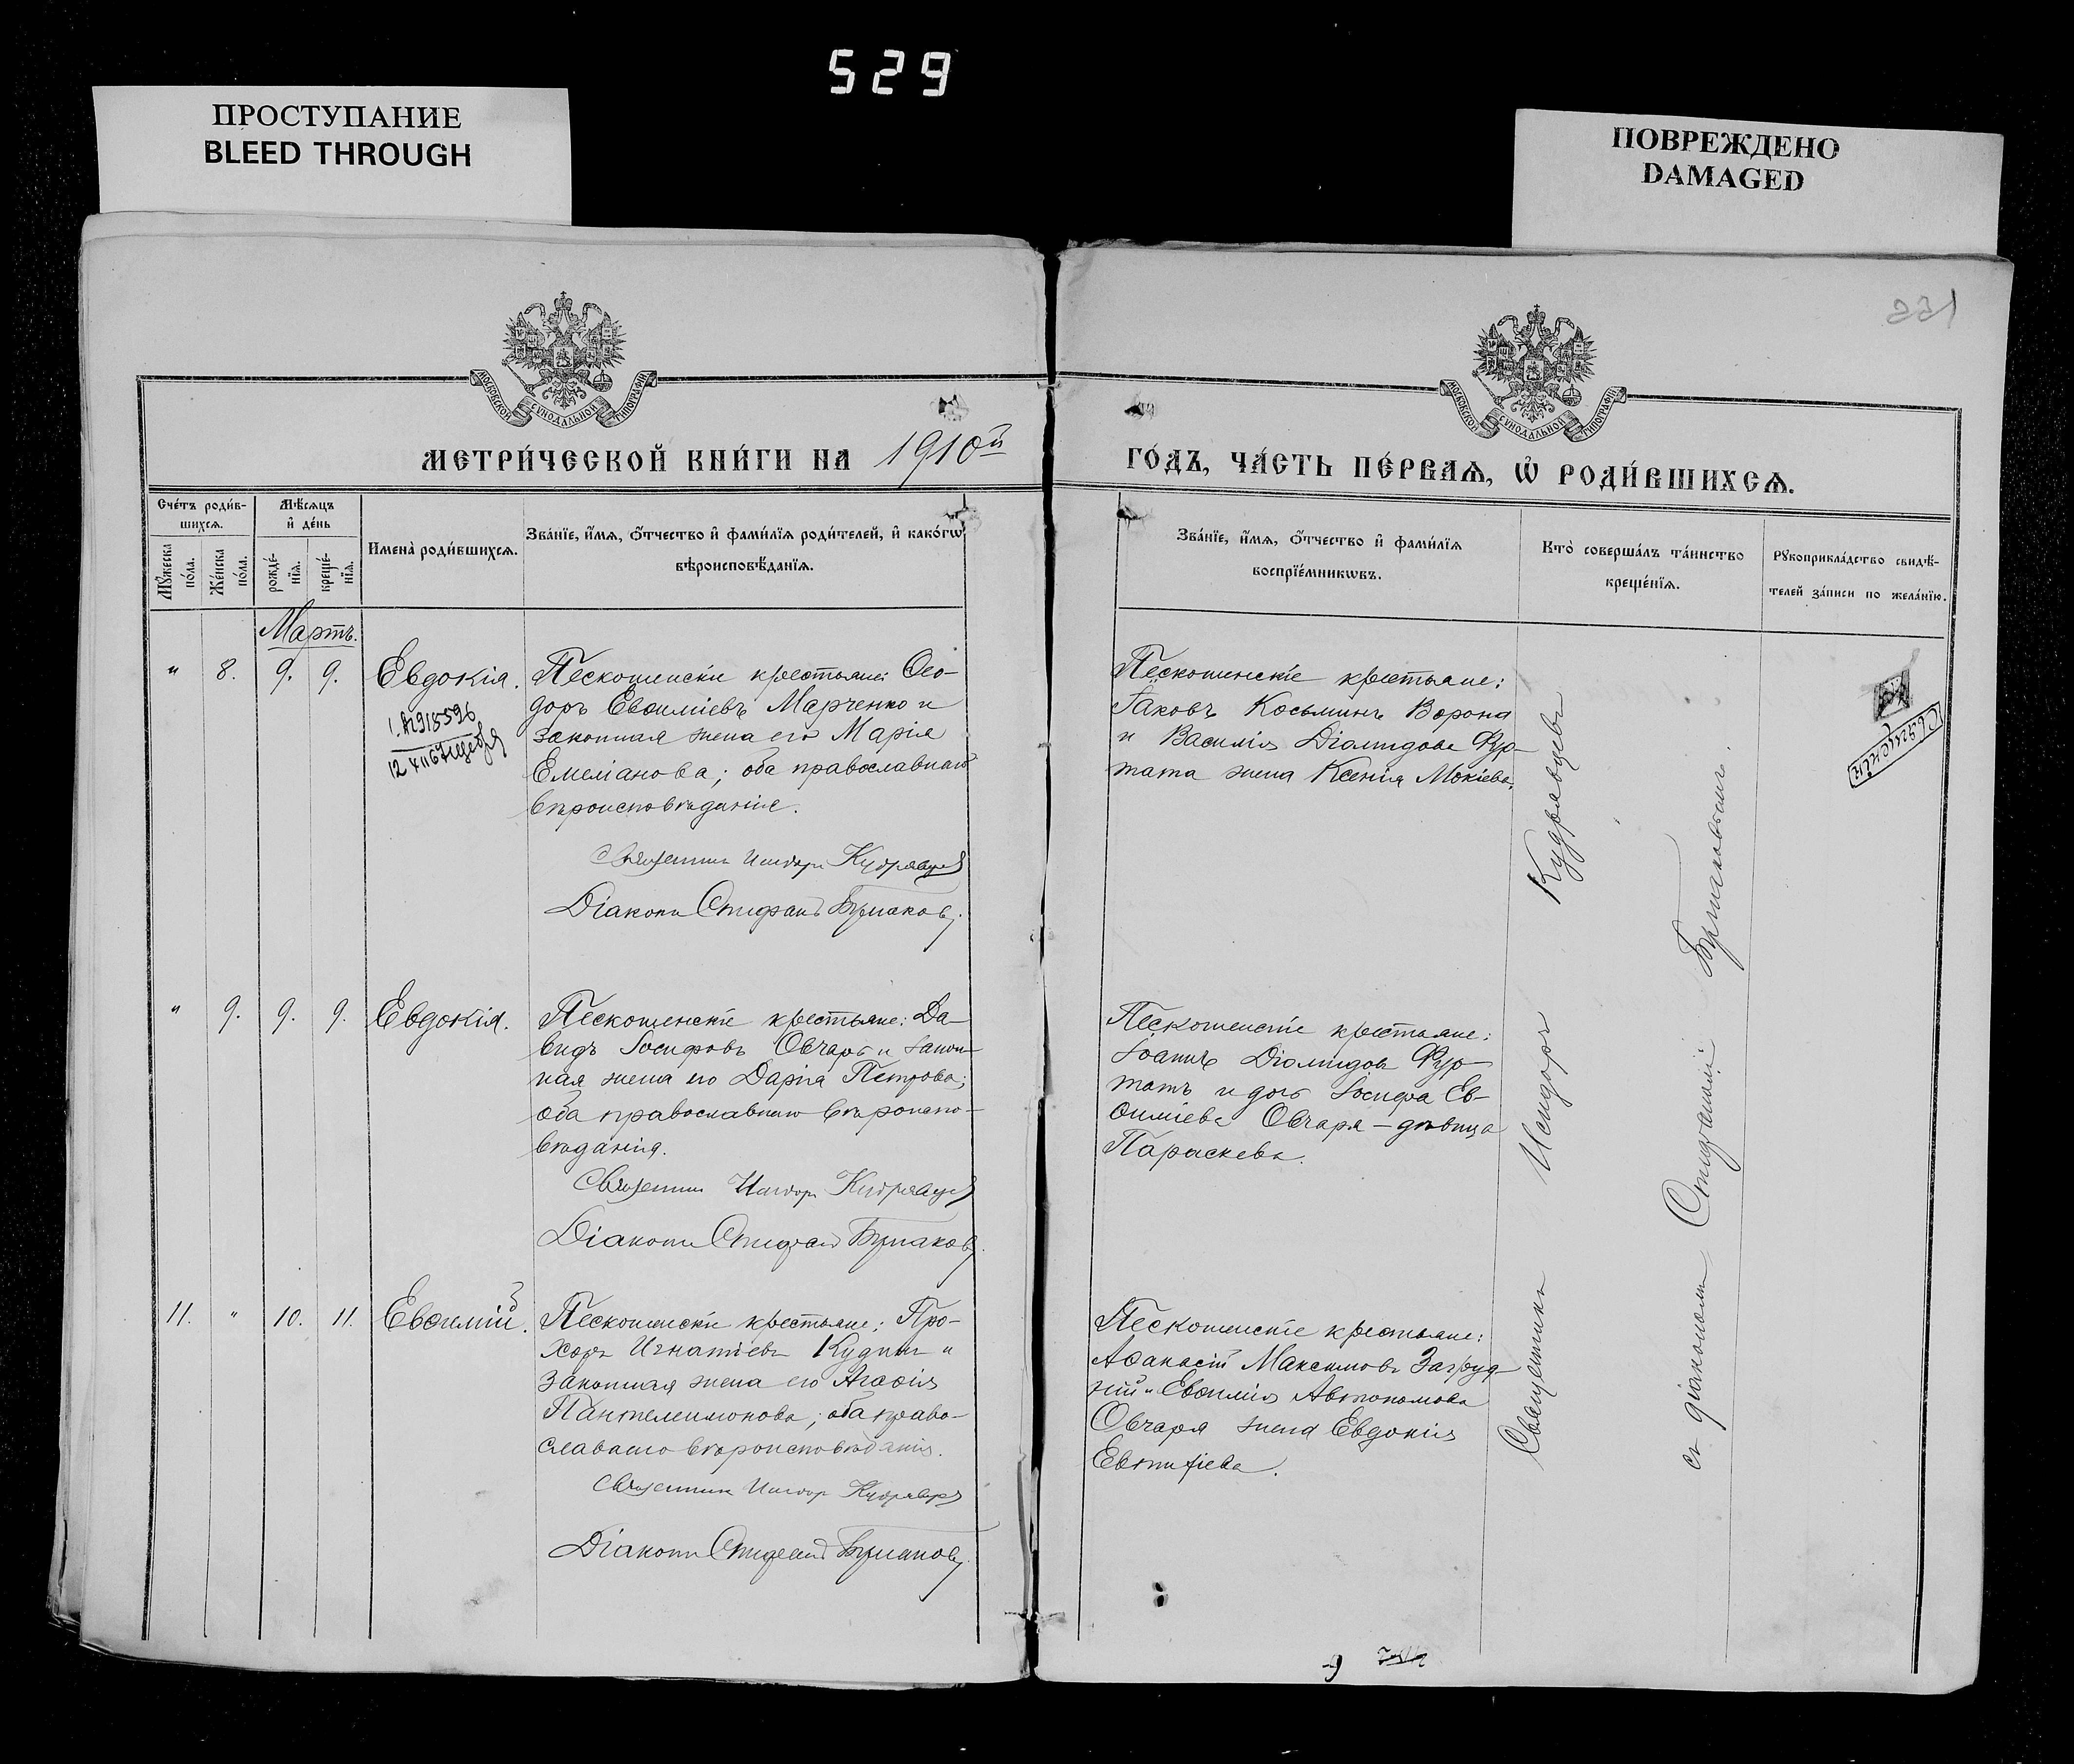 529
ПРОСТУПАНИЕ
BLEED THROUGH
ПОВРЕЖДЕНО
DAMAGED
МОСКОВСКОЙ СѴНОДАЛЬНОЙ ТИПОГРАФІИ
МОСКОВСКОЙ СѴНОДАЛЬНОЙ ТИПОГРАФІИ
МЕТРИ́ЧЕСКОЙ КНИ́ГИ НА 1910й
ГО́ДЪ, ЧА́СТЬ ПЕ́РВАѦ, Ѡ҆ РОДИ́ВШИХСѦ.
Сче́тъ роди́в-
шихсѧ.
Мꙋ́жеска
по́ла.
Же́нска
по́ла.
Мѣ́сѧцъ
и҆ де́нь
рожде́-
нїѧ.
креще́-
нїѧ.
Имена̀ роди́вшихсѧ.
Зва́нїе, и҆́мѧ, ѻ҆́тчество и҆ фами́лїѧ роди́телей, и҆ како́гѡ
вѣроисповѣ́данїѧ.
Зва́нїе, и҆́мѧ, ѻ҆́тчество и҆ фами́лїѧ
воспрїе́мникѡвъ.
Кто̀ соверша́лъ та́инство
креще́нїѧ.
Рꙋкоприкла́дство свидѣ́-
телей за́писи по жела́нїю.
Мартъ.
" 8. 9. 9. Евдокія.
Пескошинскіе крестьяне: Ѳео-
доръ Евѳиміевъ Марченко и
законная жена его Марія
Емеліанова; оба православнаго
вѣроисповѣданія.
Священникъ Исидоръ Кудрявцевъ
Діаконъ Стефанъ
Пескошенскіе крестьяне:
Іаковъ Косьминъ Ворона
и Василія Діомидова Фур-
тата жена Ксенія Мокіева.
" 9. 9. 9. Евдокія.
Пескошенскіе крестьяне: Да-
видъ Іосифовъ Овчаръ и закон-
ная жена его Дарія Петрова;
оба православнаго вѣроиспо-
вѣданія.
Священникъ Исидоръ Кудрявцевъ
Діаконъ Стефанъ
Пескошенскіе крестьяне:
Іоаннъ Діомидовъ Фур-
татъ и дочь Іосифа Ев-
ѳиміева Овчаря – дѣвица
Параскева.
11. " 10. 11. Евѳимій.
Пескошинскіе крестьяне: Про-
хоръ Игнатіевъ и
законная жена его Агаѳія
Пантелеимонова; оба право-
славнаго вѣроисповѣданія.
Священникъ Исидоръ Кудрявцевъ
Діаконъ Стефанъ
Пескошенскіе крестьяне:
Аѳанасій Максимовъ Загруд-
ній и Евѳимія Автономова
Овчаря жена Евдокія
Священникъ Исидоръ Кудрявцевъ
съ діакономъ Стефаномъ